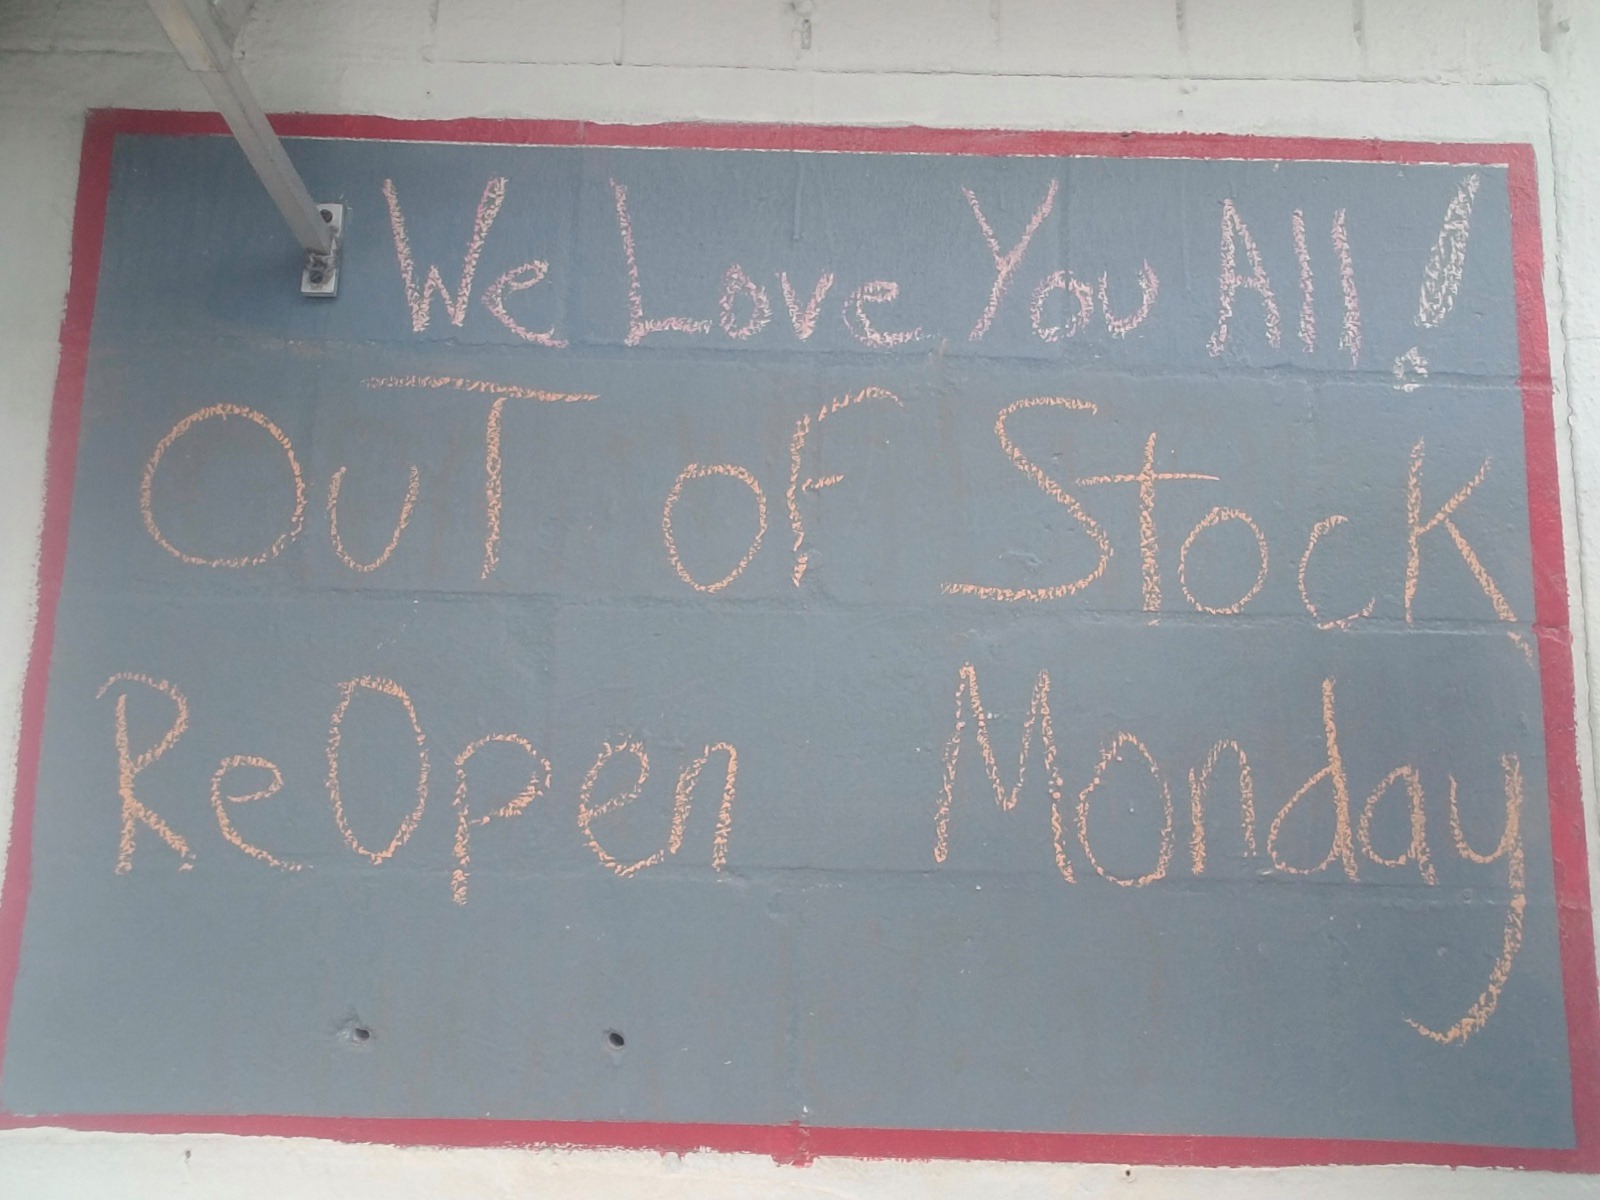 We Love You All!
OuT of Stock
ReOpen Monday